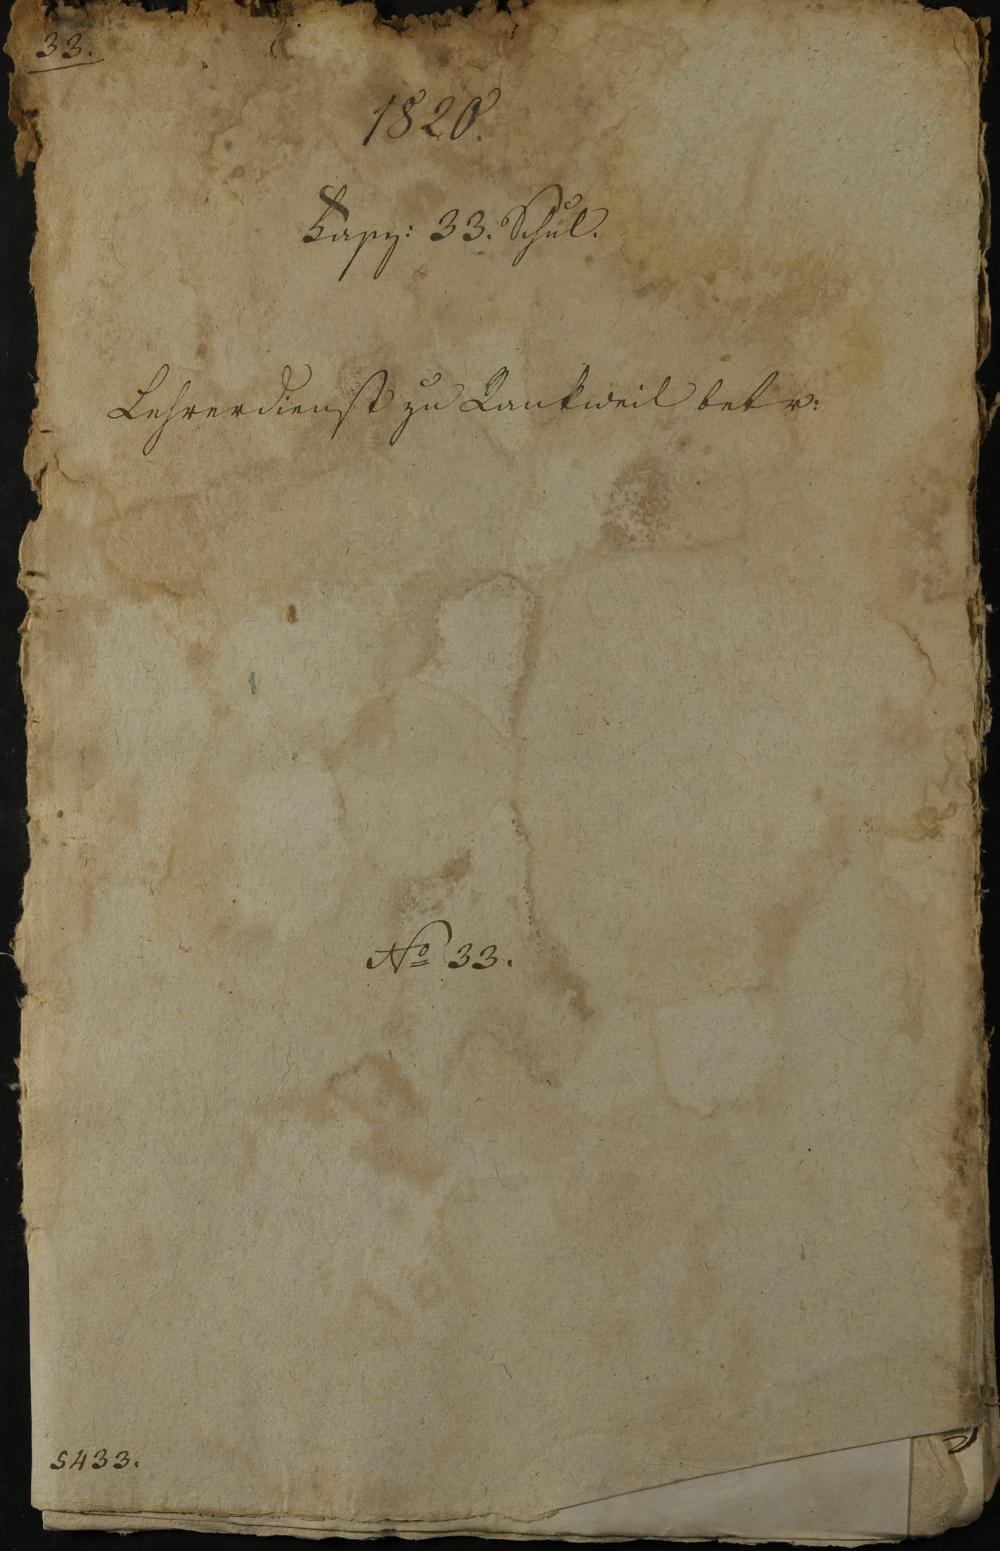 33.
1820.
Kapp: 33. Schul.
Lehrerdienst zu Rankweil betr:
No 33.
5433.